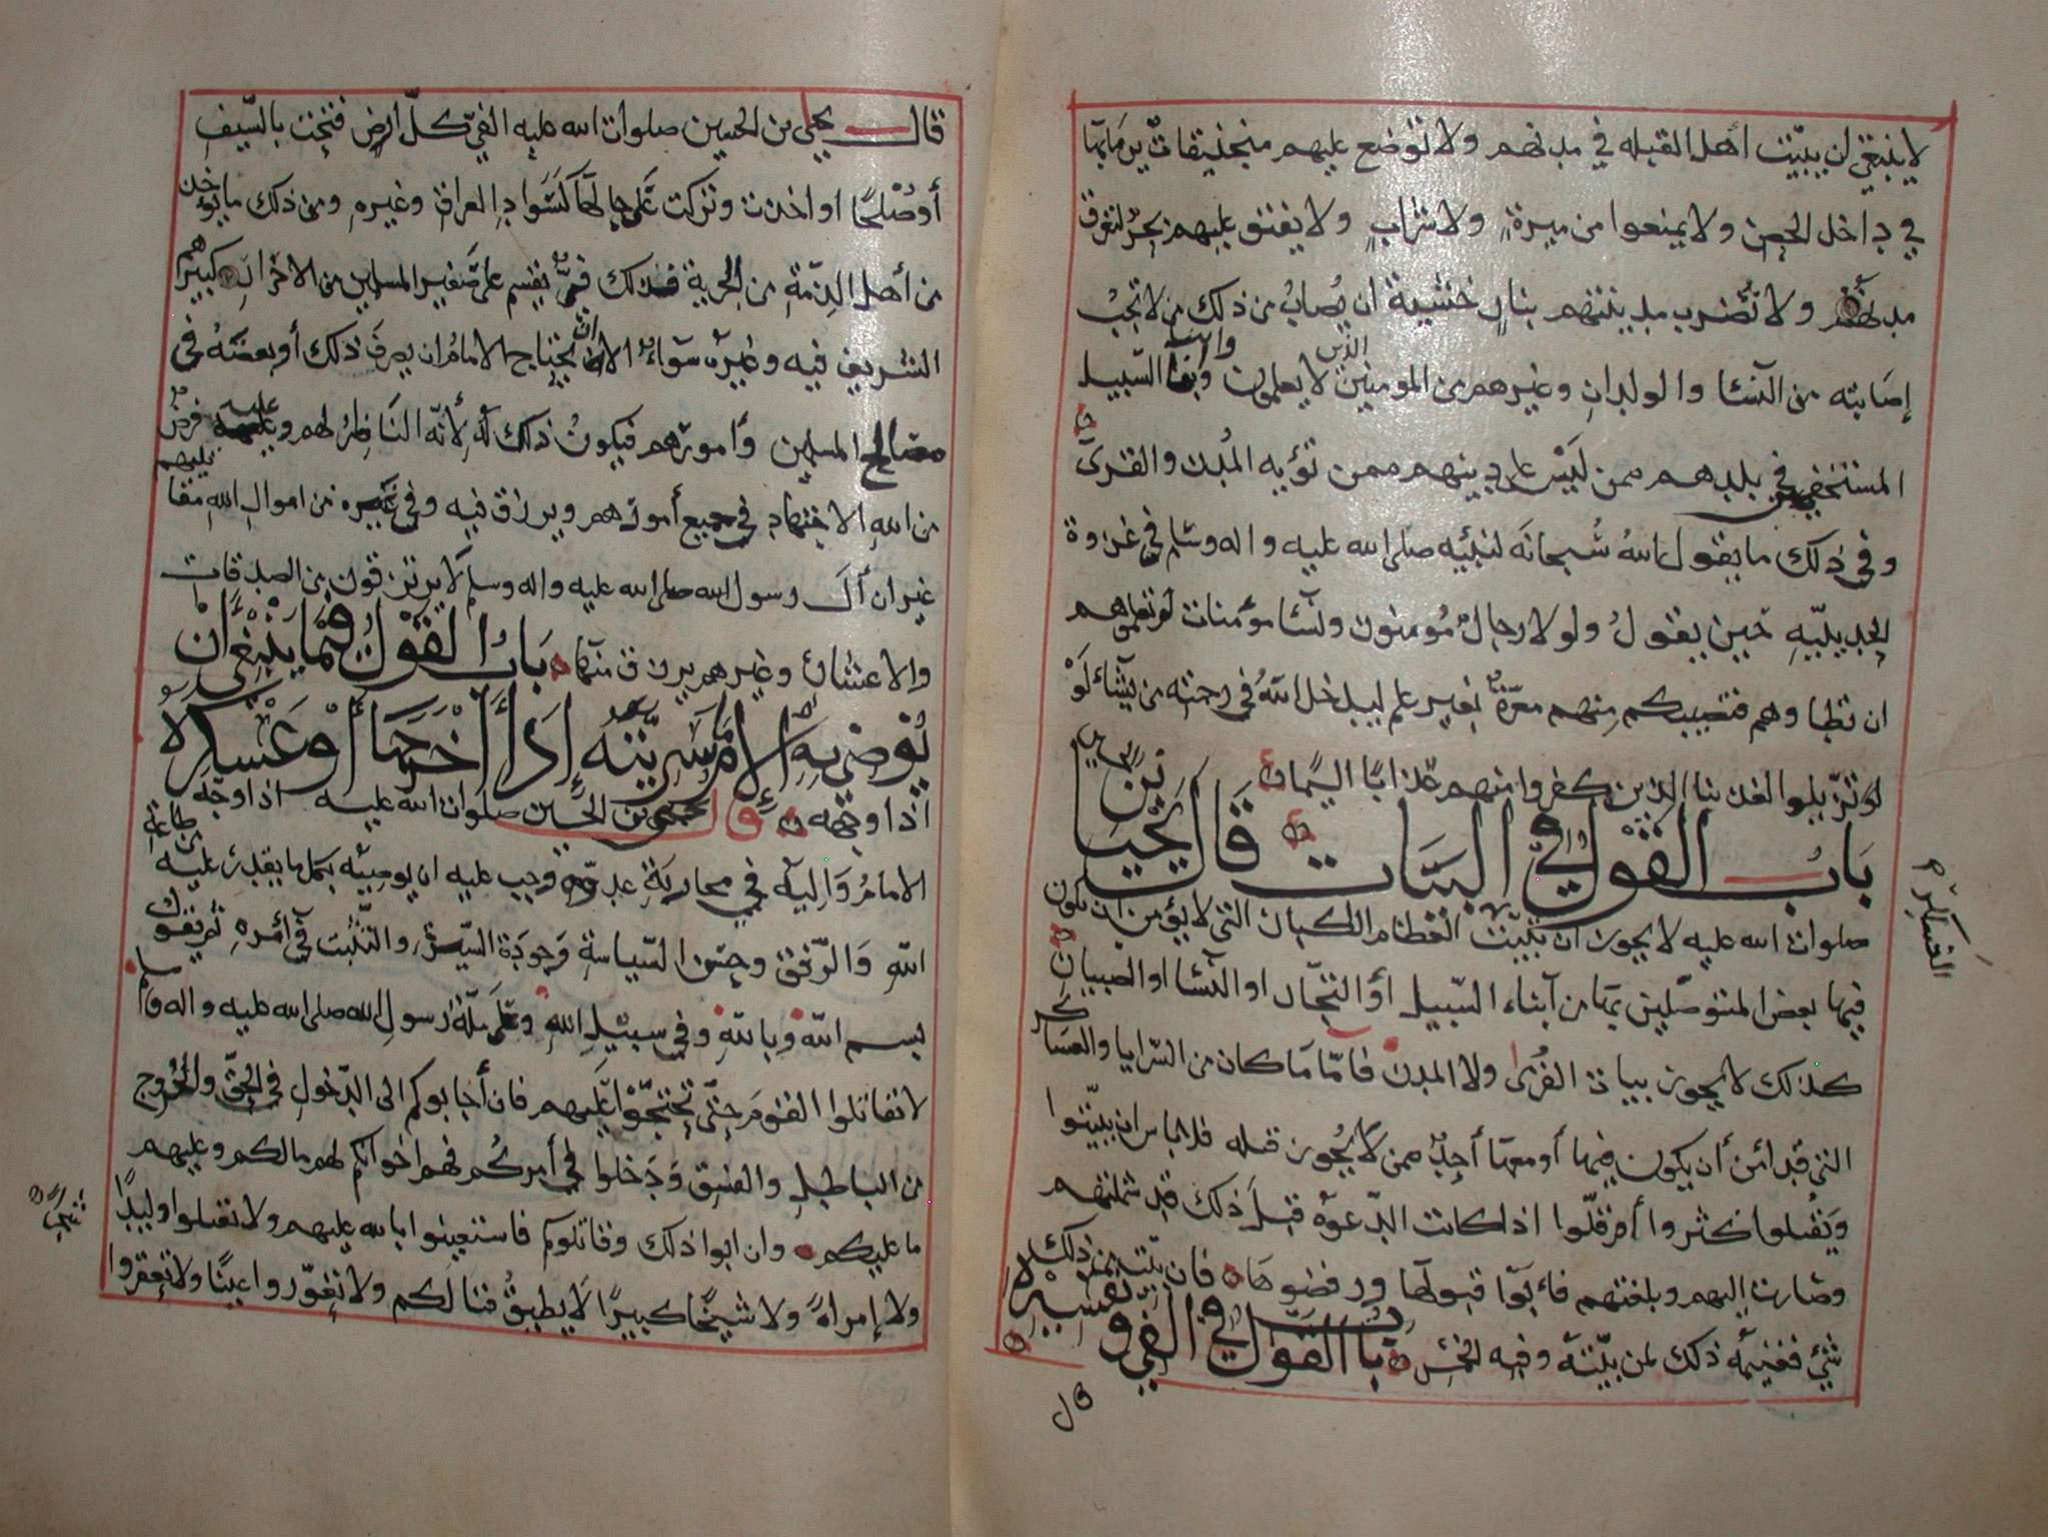 لا ينبغي أن يبيّت أهل القبله في مدنهم ولا توضع عليهم منجنيقات يرمابها
في داخل الحصن ولا يمنعوا من ميرةٍ ولا شرابٍ ولا يفتق عليهم بحرٌ لتغرق
مدنهم ولا تضرب مدينتهم بنارٍ خشية ان يصاب من ذلك من لا تجبُ
إصابته من النسا والولدانِ وغيرهم من المومنين الذين لا يعلمون وابنا السبيل
المستخفي في بلدهم ممن ليس على دينهم ممن تؤيه المدن والقرى
وفي ذلك ما يقول الله سُبحانَه لنبيّه صلى الله عليه واله وسلم في غزوة
الحديبيّهِ حين يقولُ ولولا رجالٌ مُومنون ونسآ مؤمنات لم تعلموهم
ان تطاوهم فتصيبكم منهم معرّةٌ بغير علم ليدخل اللهُ في رحمته من يشآءُ لَوْ
لو تزيلوا لعذبنا الذين كفروا منهم عذابًا اليمًا
بَابُ القَوْل في البَيَات قَالَ يَحْيَا بن الحسين
صلوات الله عليه لا يجوز ان تبيّت القطام الكبار التى لا يؤمن ان يكون
فيها بعض المتوصّلين بها من أبناء السّبيل أو التجّار او النّسا او الصبيان
كذلك لا يجوز بيات القُرى ولا المدن فامّا مَا كان من السّرايا والعساكر
التي قد أمن أن يكون فيها أو معها أحدٌ ممن لا يُجوز قتله فلا باس ان يبيّتوا
ويُقتلوا كثروا أم قلّوا اذا كانت الدّعوة قبل ذلك قد شملتهم
وصارت إليهم وبلغتهم فأبوا قبولها ورفضوها فان بيّت بعد ذلك
شيءٌ فغنيمة ذلك لمن بيّتهُ وفيه الخمس باب القول في الفي وتفسيره
العساكر
قال
قال يحيى بن الحسين صلوات الله عليه الفيّ كلّ ارض فتحت بالسّيف
أو صُلحًا او اخذت وتركت على حالها كسَوادِ العراق وغيره ومن ذلك ما يؤخذ
من أهل الذمّةِ من الجزية فذلك فيٌّ يقسم على صغير المسلمين من الاحرار وكبيرهم
الشريف فيه وغيره سواءٌ الا ان يحتاج الامامُ ان يصرفَ ذلك أو بعضَهُ في
مصالح المسلمين وأمورهم فيكونُ ذلك لهُ لأنّه النّاظرُ لهم وعليه فرض
من الله الاجتهاد في جميع أمورهم ويرزق فيه وفي غيره من اموال الله من قا
غير ان أل رسول الله صلى الله عليه واله وسلم لا يرتزقون من الصدقات
والاعشار وغيرهم يرزق منها بَابُ القَوْل فِيمَا يَنْبَغي أنْ
يُوصِيَ بِهِ الإمامُ سَرِيَّتهُ إِذَا أخرجَهَا أوْ عَسْكرهُ
اذا وجّهه قال يحيى بن الحسين صلوات الله عليه اذا وجّه
الامامُ وَاليهُ في محاربَةِ عدوّهِ وجب عليه ان يوصيَه بكل ما يقدرُ عليه من طاعة
اللهِ وَالرّفق وحسن السّياسةِ وجودَة السّيرةِ والتثبّت في أمرهِ ثم يقول
بسم اللهِ وباللهِ وفي سبيلِ اللهِ وعلى ملّةِ رسول الله صلى الله عليه واله وسلم
لا تقاتلوا القومَ حتّى تحتجّوا عليهم فان أجابوكم الى الدّخولِ في الحقّ والخروج
من الباطل والفسق ودَخلوا في أمركُم فهم اخوانكم لهم مالكم وعليهم
ما عليكم وان ابوا ذلك وقاتلوكم فاستعينوا بالله عليهم ولا تقتلوا وليدًا
ولا إمراةً ولا شيخًا كبيرًا لا يطيقُ قتالكم ولا تغوّروا عينًا ولا تعقروا